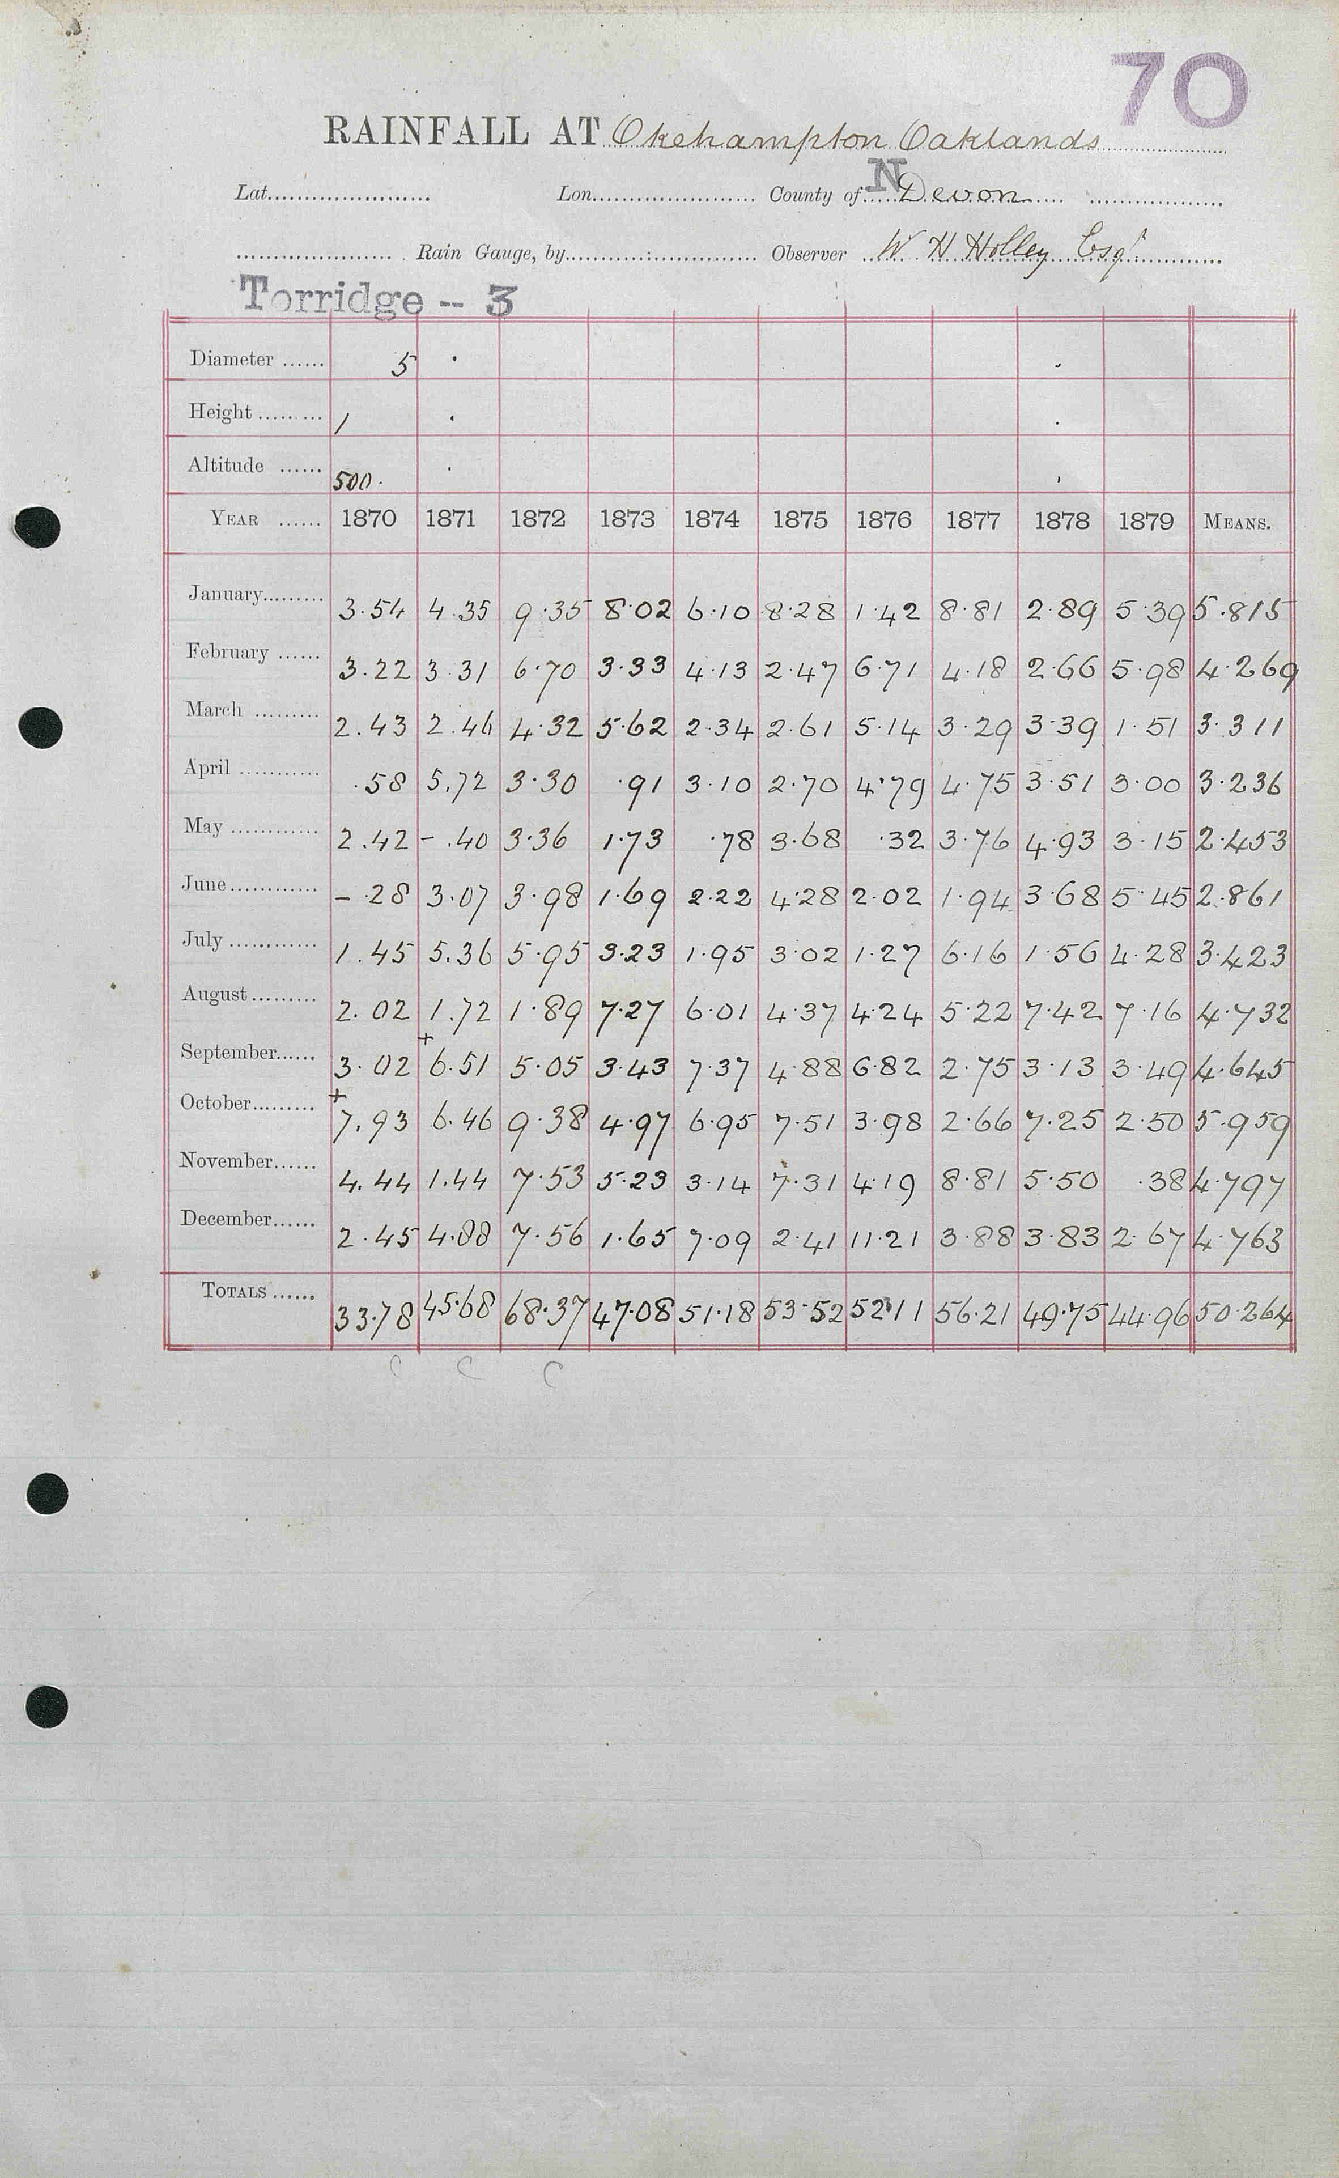 70
RAINFALL AT Okehampton Oaklands
Lat. Lon. County of N Devon
Rain Gauge, by Observer W H Holley Esqr
Torridge -- 3
Diameter 5
Height 1
Altitude 500.
YEAR 1870 1871 1872 1873 1874 1875 1876 1877 1878 1879 MEANS.
January 3.54 4.35 9.35 8.02 6.10 8.28 1.42 8.81 2.89 5.39 5.815
February 3.22 3.31 6.70 3.33 4.13 2.47 6.71 4.18 2.66 5.98 4.269
March 2.43 2.46 4.32 5.62 2.34 2.61 5.14 3.29 3.39 1.51 3.311
April .58 5.72 3.30 .91 3.10 2.70 4.79 4.75 3.51 3.00 3.236
May 2.42 - .40 3.36 1.73 .78 3.68 .32 3.76 4.93 3.15 2.453
June - .28 3.07 3.98 1.69 2.22 4.28 2.02 1.94 3.68 5.45 2.861
July 1.45 5.36 5.95 3.23 1.95 3.02 1.27 6.16 1.56 4.28 3.423
August 2.02 1.72 1.89 7.27 6.01 4.37 4.24 5.22 7.42 7.16 4.732
September 3.02 + 6.51 5.05 3.43 7.37 4.88 6.82 2.75 3.13 3.49 4.645
October + 7.93 6.46 9.38 4.97 6.95 7.51 3.98 2.66 7.25 2.50 5.959
November 4.44 1.44 7.53 5.23 3.14 7.31 4.19 8.81 5.50 .38 4.797
December 2.45 4.88 7.56 1.65 7.09 2.41 11.21 3.88 3.83 2.67 4.763
TOTALS 33.78 45.68 68.37 47.08 51.18 53.52 52.11 56.21 49.75 44.96 50.264
C C C